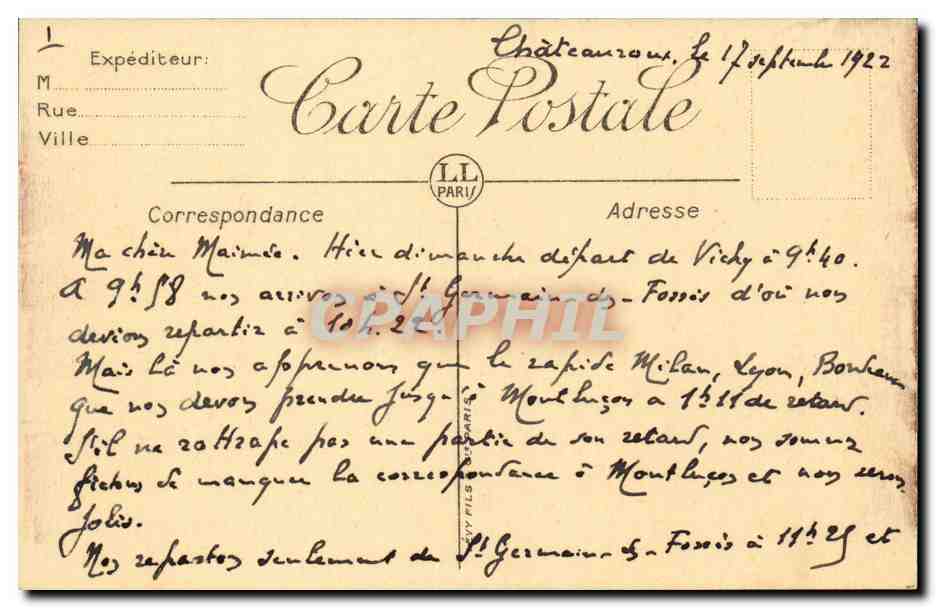 1
Châteauroux, le 17 septembre 1922
Expéditeur:
M
Rue
Ville
Carte Postale
LL
PARIS
Correspondance
Adresse
Ma chère Maimée. Hier dimanche départ de Vichy à 9h40.
A 9h58 nos arrivos à St Germain-des-Fossés d'où nous
devions repartir à 10h.22.
Mais là nos apprenons que le rapide Milan, Lyon, Bordeaux
que nos devons prendre jusqu'à Montluçon a 1h11 de retard.
S'il ne rattrape pas une partie de son retard, nos sommes
fichus de manquer la correspondance à Montluçon et nous serons
jolis.
Nos repartons seulement de St Germain-ds-Fossés à 11h25 et
LÉVY FILS & Cie PARIS
CPARPHIL